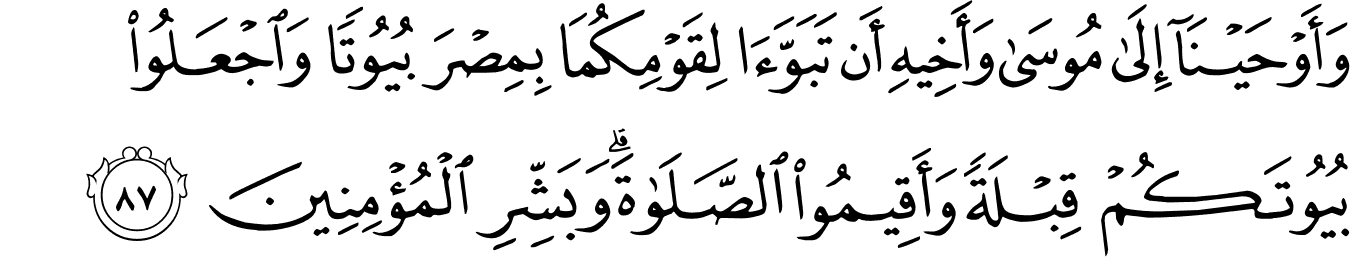 وَأَوْحَيْنَآ إِلَىٰ مُوسَىٰ وَأَخِيهِ أَن تَبَوَّءَا لِقَوْمِكُمَا بِمِصْرَ بُيُوتًا وَٱجْعَلُوا۟
بُيُوتَكُمْ قِبْلَةً وَأَقِيمُوا۟ ٱلصَّلَوٰةَ ۗ وَبَشِّرِ ٱلْمُؤْمِنِينَ ٨٧